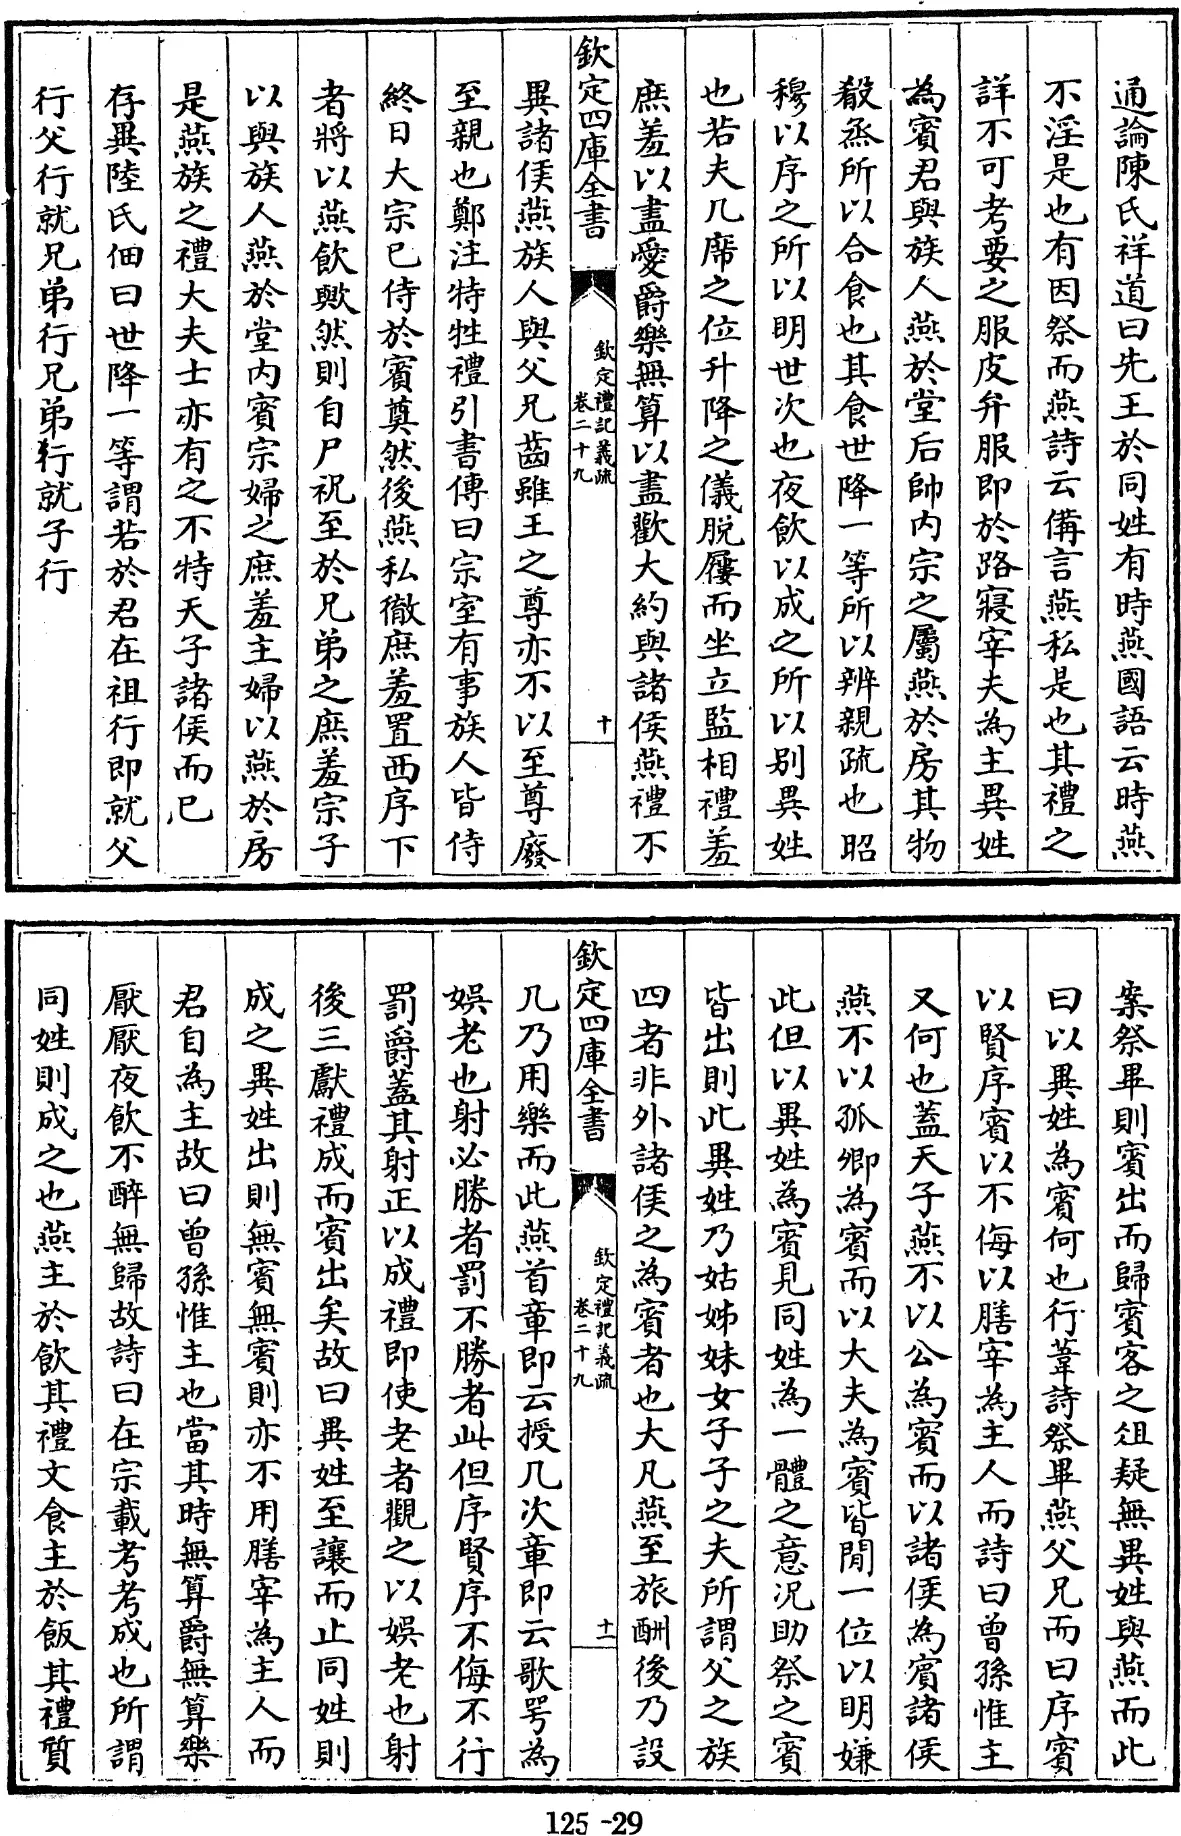 通論陳氏祥道曰先王於同姓有時燕國語云時燕
不淫是也有因祭而燕詩云備言燕私是也其禮之
詳不可考要之服皮弁服即於路寢宰夫為主異姓
為賓君與族人燕於堂后帥内宗之屬燕於房其物
殽烝所以合食也其食世降一等所以辨親疏也昭
穆以序之所以明世次也夜飲以成之所以别異姓
也若夫几席之位升降之儀脱屨而坐立監相禮羞
庶羞以盡愛爵樂無算以盡歡大約與諸侯燕禮不
欽定四庫全書
欽定禮記義疏
卷二十九
十
異諸侯燕族人與父兄齒雖王之尊亦不以至尊廢
至親也鄭注特牲禮引書傳曰宗室有事族人皆侍
終日大宗已侍於賓奠然後燕私徹庶羞置西序下
者將以燕飲歟然則自尸祝至於兄弟之庶羞宗子
以與族人燕於堂内賓宗婦之庶羞主婦以燕於房
是燕族之禮大夫士亦有之不特天子諸侯而已
存異陸氏佃曰世降一等謂若於君在祖行即就父
行父行就兄弟行兄弟行就子行
案祭畢則賓出而歸賓客之俎疑無異姓與燕而此
曰以異姓為賓何也行葦詩祭畢燕父兄而曰序賓
以賢序賓以不侮以膳宰為主人而詩曰曾孫惟主
又何也蓋天子燕不以公為賓而以諸侯為賓諸侯
燕不以孤卿為賓而以大夫為賓皆閒一位以明嫌
此但以異姓為賓見同姓為一體之意况助祭之賓
皆出則此異姓乃姑姊妹女子子之夫所謂父之族
四者非外諸侯之為賓者也大凡燕至旅酬後乃設
欽定四庫全書
欽定禮記義疏
卷二十九
十一
几乃用樂而此燕首章即云授几次章即云歌咢為
娯老也射必勝者罰不勝者此但序賢序不侮不行
罰爵蓋其射正以成禮即使老者觀之以娯老也射
後三獻禮成而賓出矣故曰異姓至讓而止同姓則
成之異姓出則無賓無賓則亦不用膳宰為主人而
君自為主故曰曾孫惟主也當其時無算爵無算樂
厭厭夜飲不醉無歸故詩曰在宗載考考成也所謂
同姓則成之也燕主於飲其禮文食主於飯其禮質
125-29